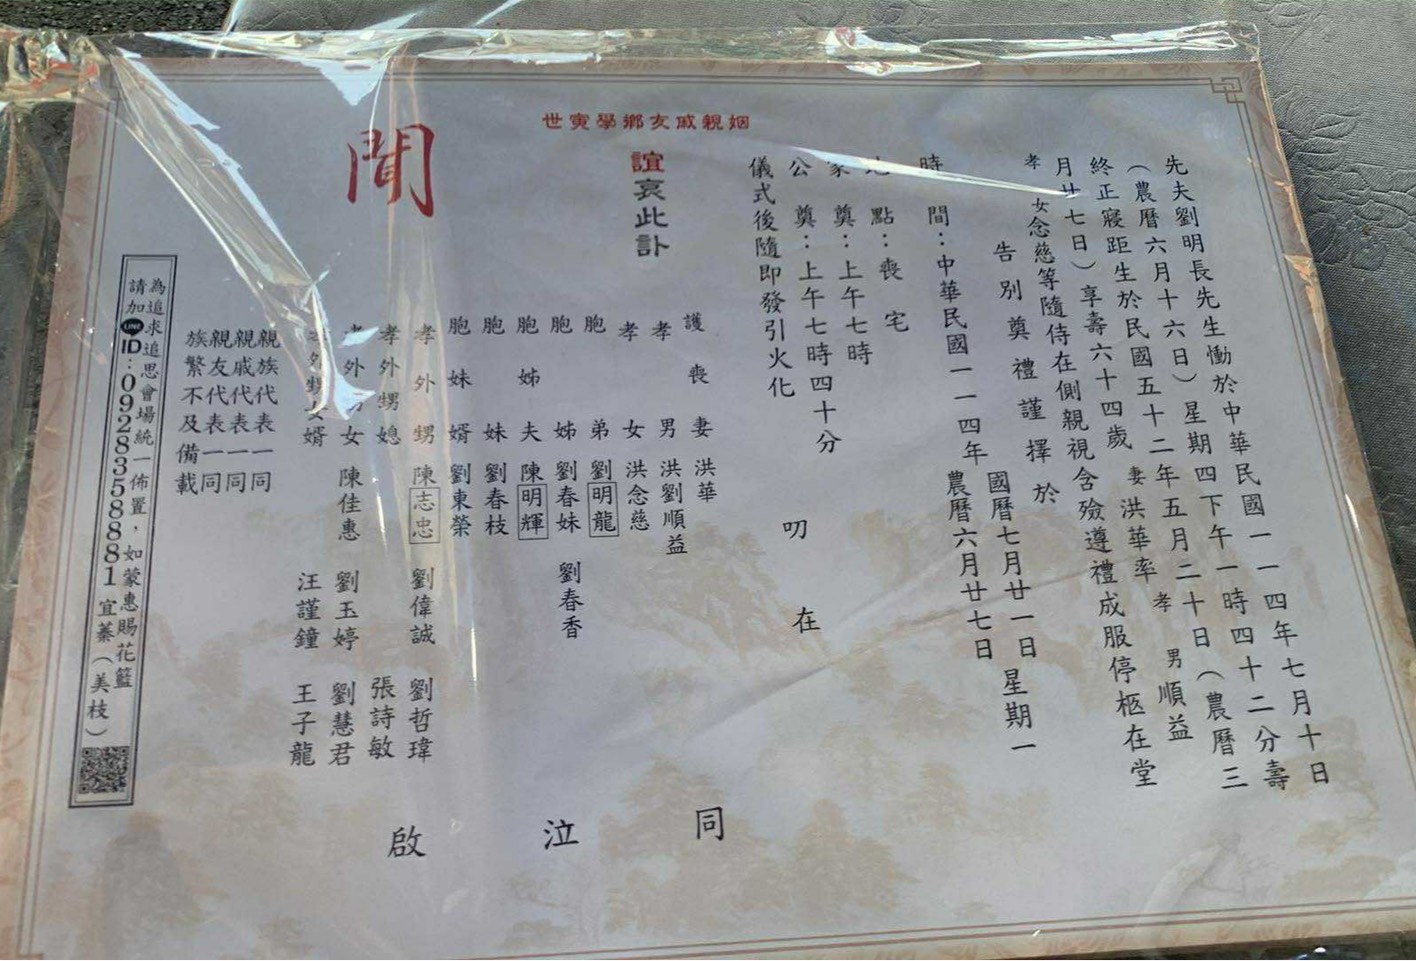 先夫劉明長先生慟於中華民國一一四年七月十日
(農曆六月十六日)星期四下午一時四十二分壽
終正寢距生於民國五十二年五月二十日(農曆三
月廿七日)享壽六十四歲 妻洪華率 孝男順益
孝女念慈等隨侍在側親視含殮遵禮成服停柩在堂
告別奠禮謹擇於
時間:中華民國一一四年 國曆七月廿一日 農曆六月廿七日 星期一
地點:喪宅
家奠:上午七時
公奠:上午七時四十分
儀式後隨即發引火化
叨在
世寅學鄉友戚親姻
誼哀此訃
聞
護喪妻 洪華
孝男 洪劉順益
孝女 洪念慈
胞弟 劉明龍
胞姊 劉春妹 劉春香
胞姊夫 陳明輝
胞妹 劉春枝
胞妹婿 劉東榮
孝外甥 陳志忠 劉偉誠 劉哲瑋
孝外甥媳 張詩敏
孝外甥女 陳佳惠 劉玉婷 劉慧君
孝外甥女婿 汪謹鐘 王子龍
親族代表一同
親戚代表一同
親友代表一同
族繁不及備載
同泣啟
為追求追思會場統一佈置,如蒙惠賜花籃
請加LINE ID:0928358881 宜蓁(美枝)